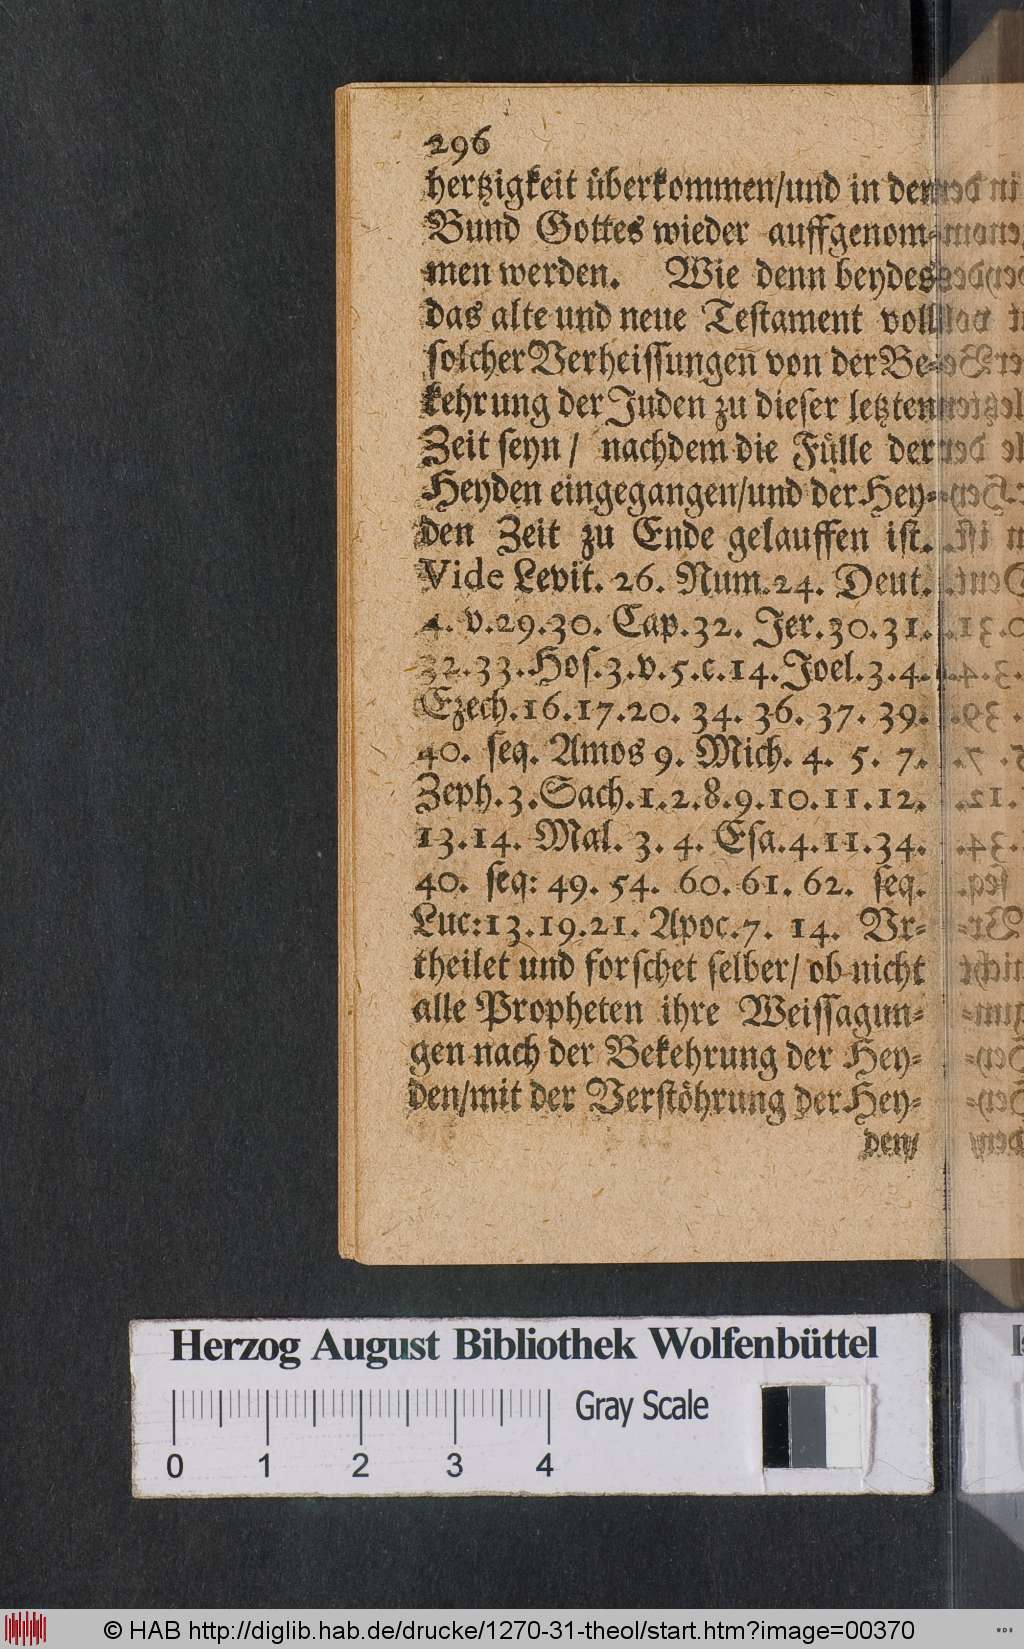 296
hertzigkeit überkommen/und in den
Bund Gottes wieder auffgenom-
men werden. Wie denn beydes
das alte und neue Testament voll
solcher Verheissungen von der Be-
kehrung der Juden zu dieser letzten
Zeit seyn / nachdem die Fülle der
Heyden eingegangen/und der Hey-
den Zeit zu Ende gelauffen ist.
Vide Levit. 26. Num. 24. Deut.
4. v. 29. 30. Cap. 32. Jer. 30. 31.
32. 33. Hos. 3. v. 5. c. 14. Joel. 3. 4.
Ezech. 16. 17. 20. 34. 36. 37. 39.
40. seq. Amos 9. Mich. 4. 5. 7.
Zeph. 3. Sach. 1. 2. 8. 9. 10. 11. 12.
13. 14. Mal. 3. 4. Esa. 4. 11. 34.
40. seq: 49. 54. 60. 61. 62. seq.
Luc: 13. 19. 21. Apoc. 7. 14. Ur-
theilet und forschet selber/ ob nicht
alle Propheten ihre Weissagun-
gen nach der Bekehrung der Hey-
den/mit der Verstöhrung der Hey-
den/
Herzog August Bibliothek Wolfenbüttel
Gray Scale
0 1 2 3 4
© HAB http://diglib.hab.de/drucke/1270-31-theol/start.htm?image=00370